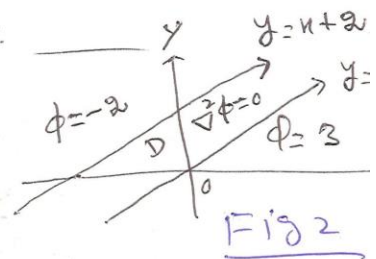 y
y=x+2
y=
φ=-2
∇²φ=0
D
φ=3
0
Fig 2